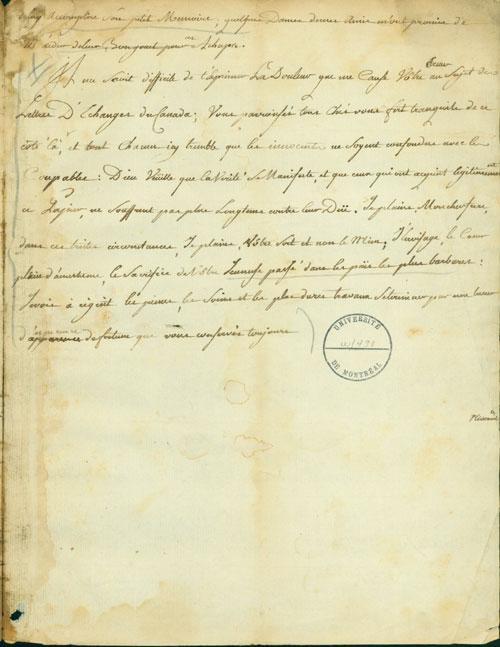 Son petit Memoire, quelques Dames de mes Amis m'ont promise de
pour
Il me Seroit difficile de t'exprimer La Douleur que me Cause Nôtre au Sujet des
Lettres D'Echanges du Canada; Vous paroissés tous Chés vous fort tranquile de ce
côté là, et tout Chacun icy tremble que les innocents ne soyent confondus avec les
Coupables: Dieu Veuille que la Vérité Se Manifeste, et que ceux qui ont acquist légitimement
ce Papier ne Souffrent pas plus Longtems contre leur Düe. Je plains, Mon cher frere,
dans ces tristes circonstances, Je plains, Vôtre Sort et non le Mien, J'Envisage, le Coeur
plein d'amertume, le Sacrifice de Vôtre Jeunesse passé dans les païs les plus barbares:
à les peines, les Soins et les plus dures travaux Se terminer pour une lueur
d'apparence de fortune que vous conservés toujours
UNIVERSITÉ
DE MONTRÉAL